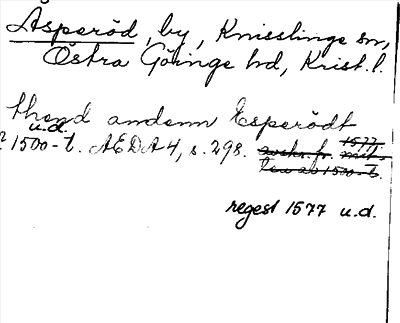 Åsperöd, by, Knisslinge sn,
Östra Göinge hd, Krist. l.
thend andenn Esperödt
u.d.
1500-t. ÆDA 4, s. 298. avskr. fr. 1577
regest 1577 u.d.